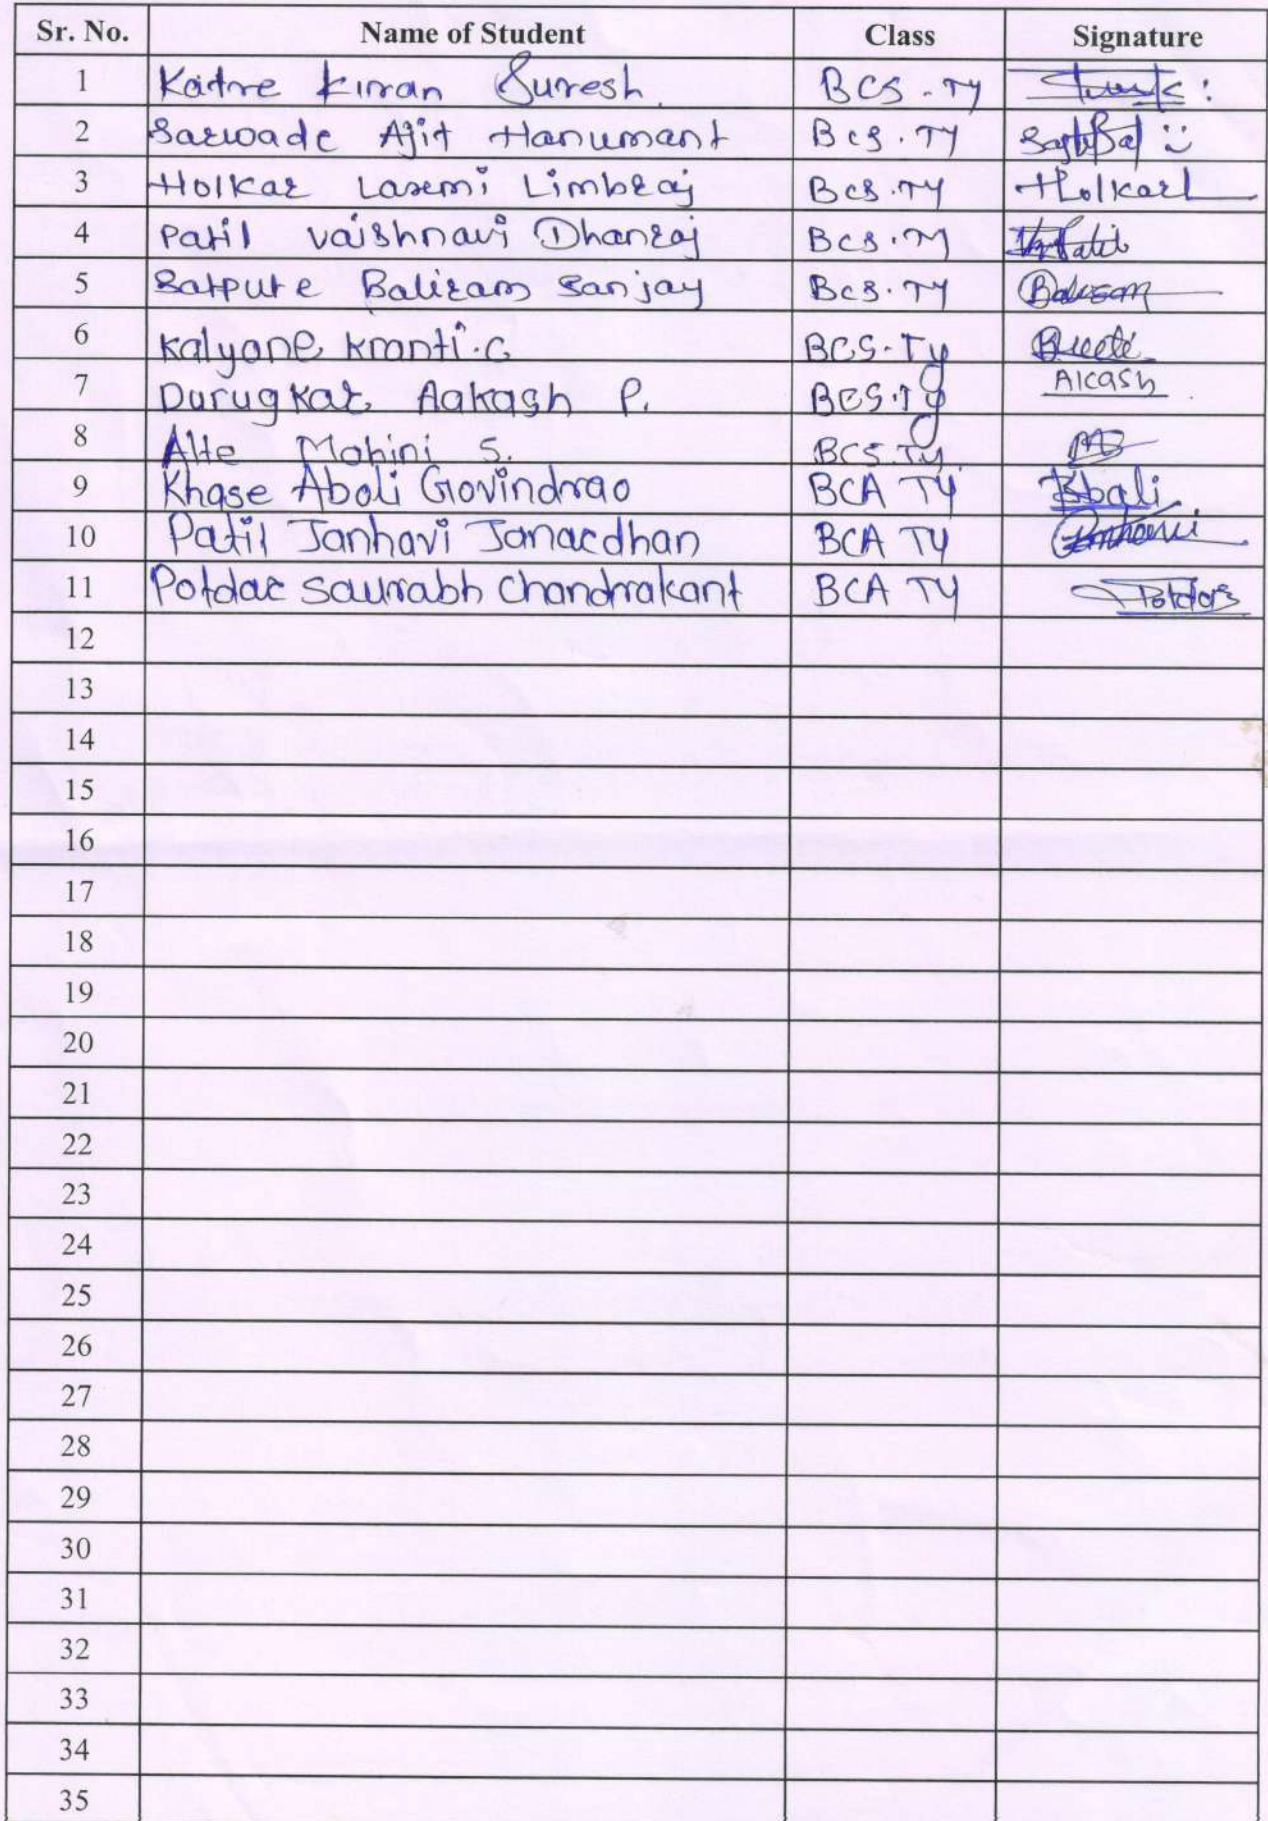 Sr. No. Name of Student Class Signature
1 Katre Kiran Suresh BCS - TY
2 Sarwade Ajit Hanumant BCS . TY
3 Holkar Laxmi Limbraj BCS . TY HolkarL
4 Patil Vaishnavi Dhanraj BCS . TY Patil
5 Satpute Baliram Sanjay BCS . TY Baliram
6 Kalyane Kranti . G BCS - Ty
7 Durugkar Aakash P. BCS . Ty Akash
8 Alte Mohini S. BCS . Ty
9 Khase Aboli Govindrao BCA TY
10 Patil Janhavi Janardhan BCA TY
11 Potdar Saurabh Chandrakant BCA TY
12
13
14
15
16
17
18
19
20
21
22
23
24
25
26
27
28
29
30
31
32
33
34
35